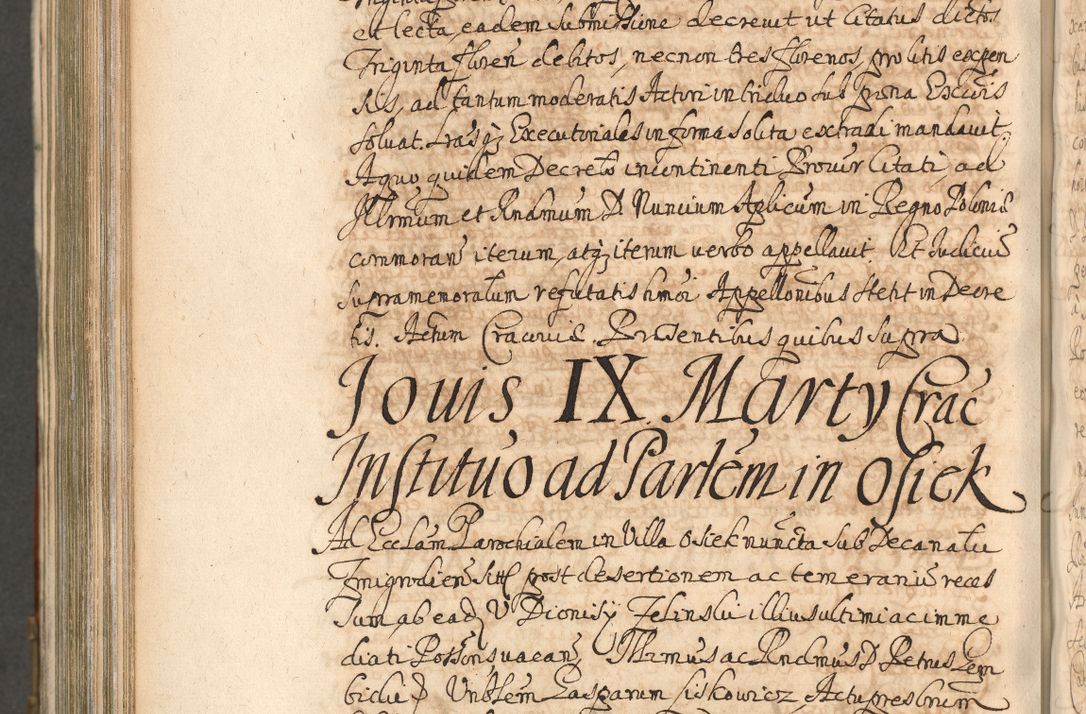 et lecta, eadem submissione decrevit ut Citatus dictos
Triginta floren̄ debitos, necnon tres florenos, pro litis expen
sis, ad tantum moderatis Actori in triduo sub pœna Excōis
solvat. Lrasq; Executoriales in forma solita extradi mandavit.
A quo quidem Decreto incontinenti Procur̄ Citati, ad
Illrmum et Rndmum D. Nuncium Aplicum in Regno Poloniæ
commoran̄ iterum, atq; iterum verbo appellavit. Et Judiciū
supra memoratum refutatis hmōi Appellōnibus stetit in Decre
tis. Actum Cracoviæ. Præsentibus quibus supra.
Jovis IX. Marty Crac̄
Institutio ad Parlem in Osiek
Ad Ecclam Parochialem in Villa Osiek nuncta sub Decanatu
Zmigrodien̄ sitt post desertionem ac temerariū reces
sum ab ead̄ V Dionisij Zelinski illius ultimi ac imme
diati Possōris vacan̄ Illrmus ac Rndmus D Petrus Gem
bicki D Vnblem Gasparum Liskowicz Actu presbrum